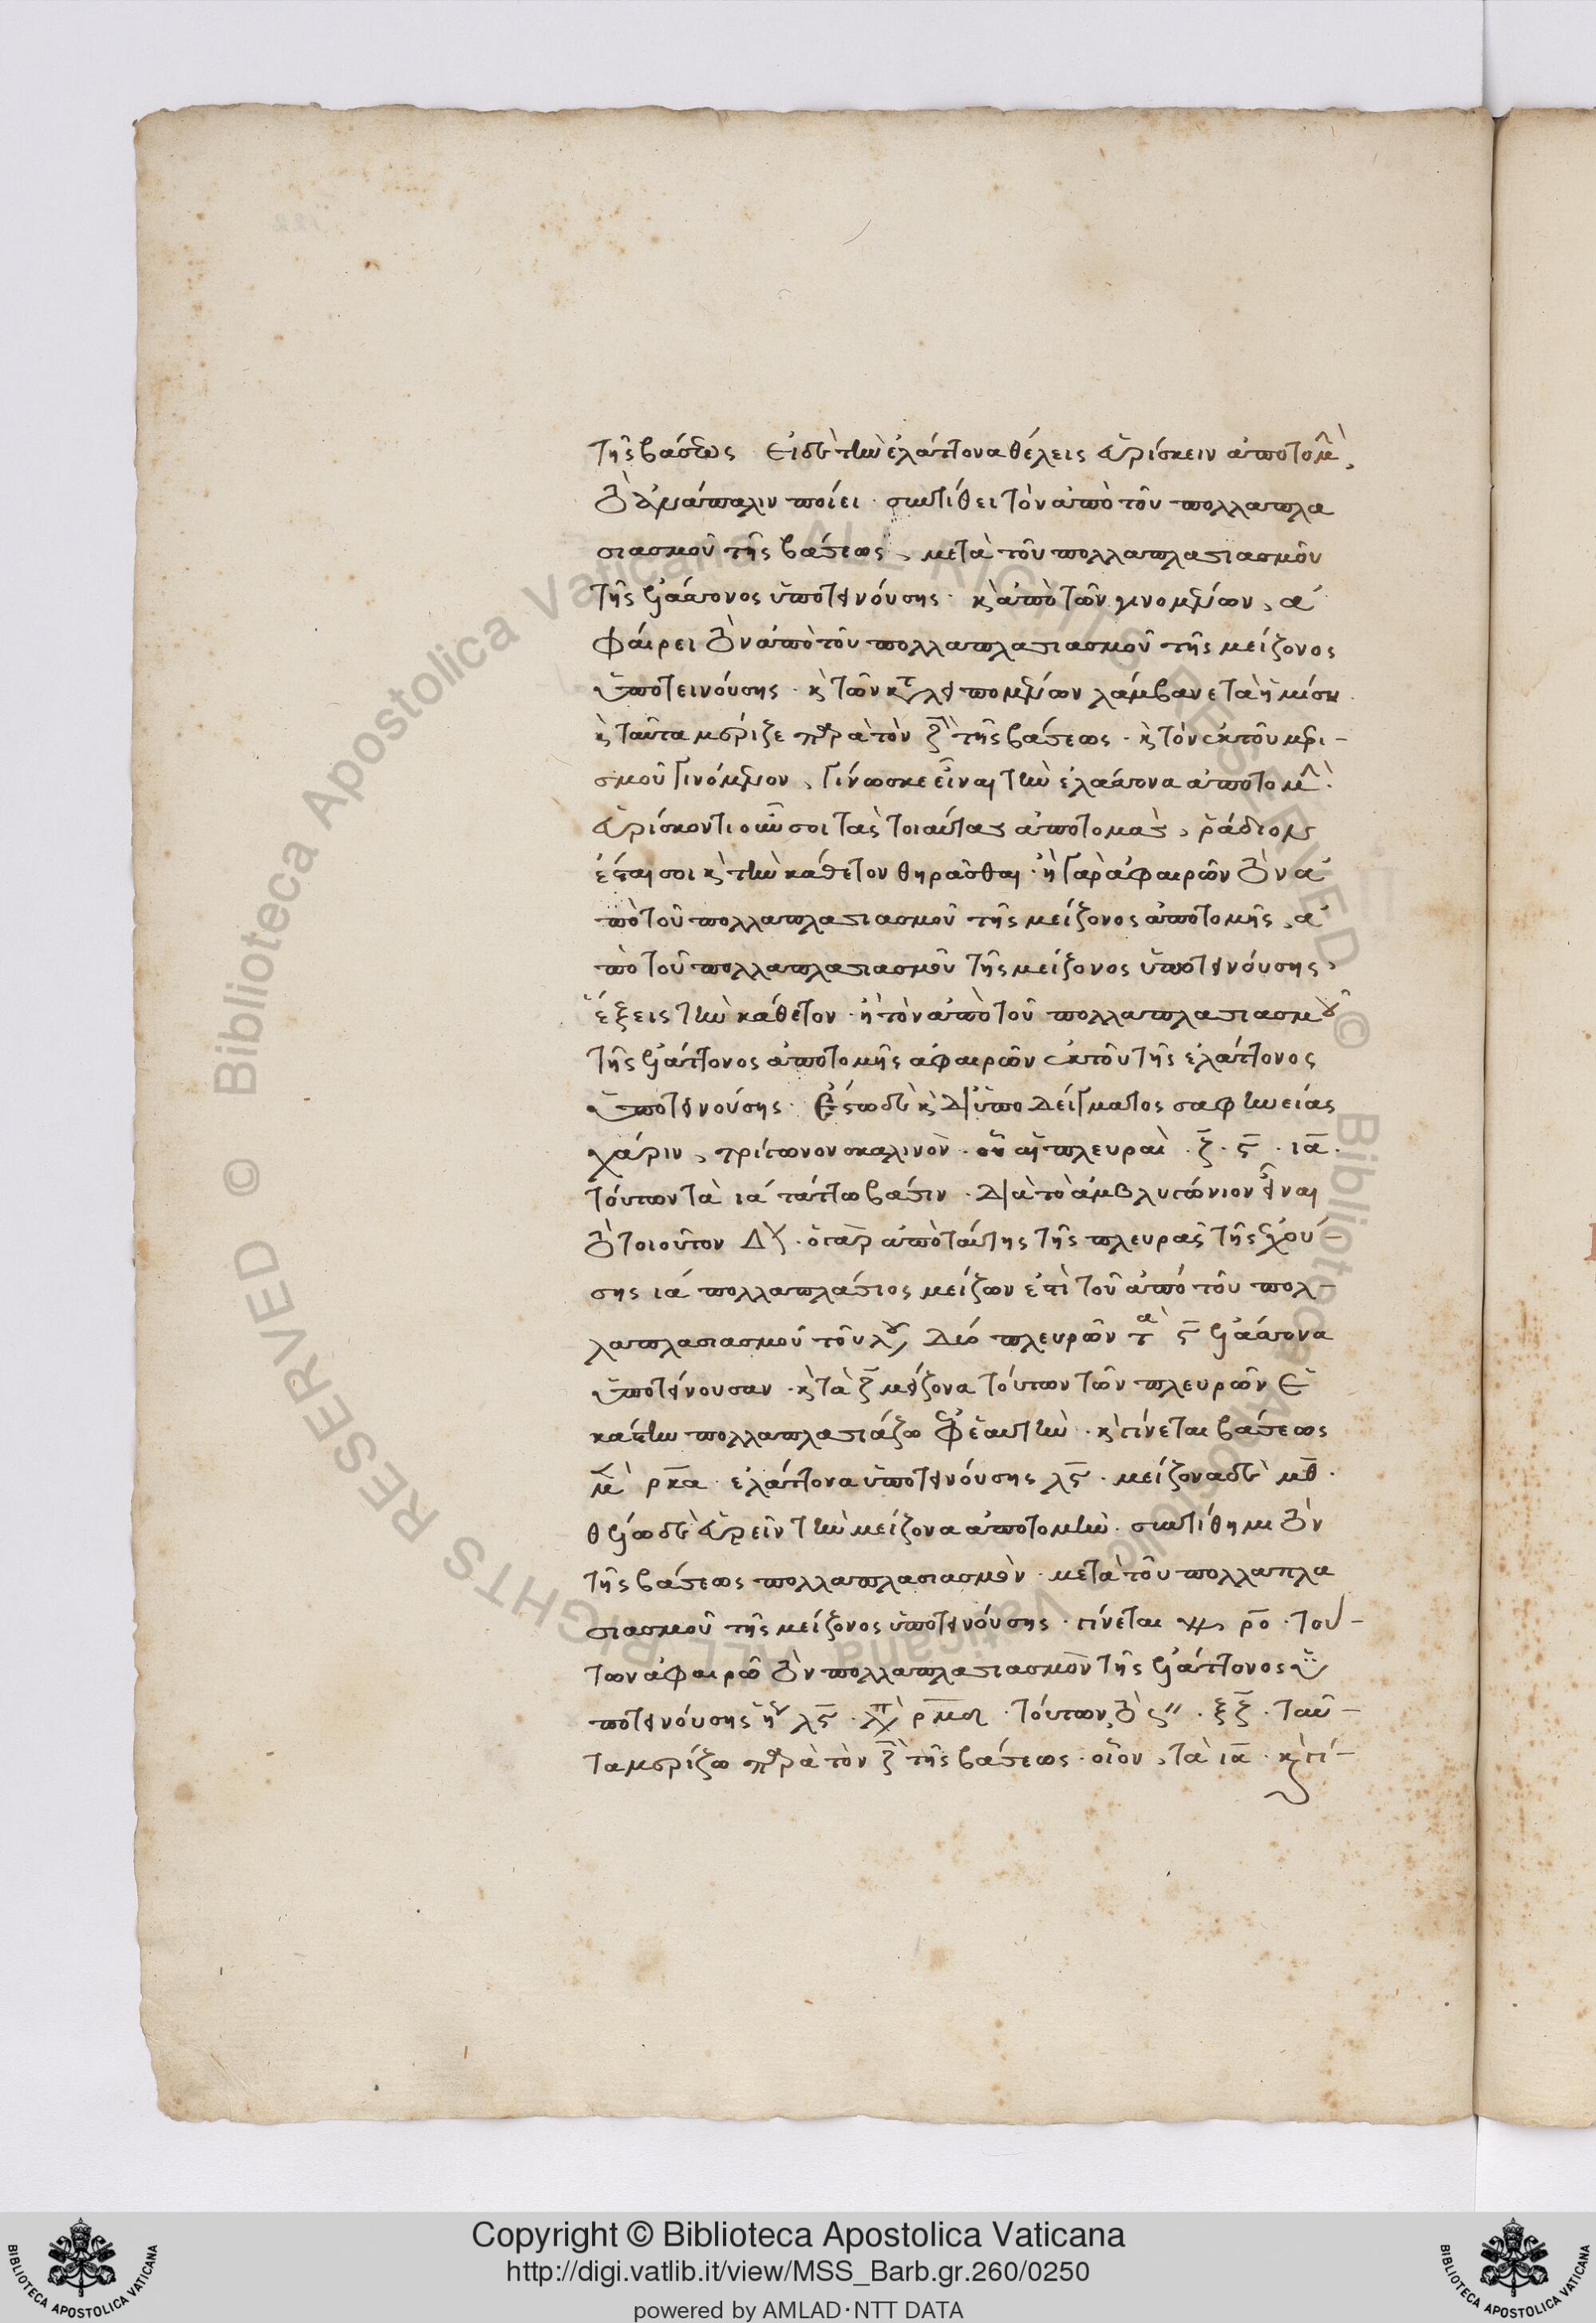 τῆς βάσεως εἰ δὲ τὴν ἐλάττονα θέλεις εὑρίσκειν ἀποτομὴν,
τὸ ἀνάπαλιν ποίει · συντίθει τὸν ἀπὸ τοῦ πολλαπλα
σιασμοῦ τῆς βάσεως, μετὰ τοῦ πολλαπλασιασμοῦ
τῆς ἐλάττονος ὑποτεινούσης · κὶ ἀπὸ τῶν γινομένων, ἀ
φαίρει τὸν ἀπὸ τοῦ πολλαπλασιασμοῦ τῆς μείζονος
ὑποτεινούσης · κὶ τῶν καταλειπομένων λάμβανε τὰ ἡμίση
κὶ ταῦτα μέριζε παρὰ τὸν ζ̄ τῆς βάσεως · κὶ τὸν ἐκ τοῦ μερι-
σμοῦ γινόμενον, γίνωσκε εἶναι τὴν ἐλάττονα ἀποτομὴν.
εὑρίσκοντι οὖν σοι τὰς τοιαύτας ἀποτομὰς, ῥάδιον
ἔσται σοι κὶ τὴν κάθετον θηρᾶσθαι · ἢ γὰρ ἀφαιρῶν τὸν ἀ
πὸ τοῦ πολλαπλασιασμοῦ τῆς μείζονος ἀποτομῆς, ἀ
πὸ τοῦ πολλαπλασιασμοῦ τῆς μείζονος ὑποτεινούσης,
ἕξεις τὴν κάθετον · ἢ τὸν ἀπὸ τοῦ πολλαπλασιασμοῦ
τῆς ἐλάττονος ἀποτομῆς ἀφαιρῶν ἐκ τοῦ τῆς ἐλάττονος
ὑποτεινούσης · ἔστω δὲ κὶ δι ὑποδείγματος σαφηνείας
χάριν, τρίγωνον σκαλινὸν · οὗ αἱ πλευραὶ · ζ̄ · ϛ̄ · ιᾱ ·
τούτων τὰ ια τάττω βάσιν · διὰ τὸ ἀμβλυγώνιον εἶναι
τὸ τοιοῦτον · ὁ γὰρ ἀπὸ ταύτης τῆς πλευρᾶς τῆς ἐχού-
σης ια πολλαπλάσιος μείζων ἐστὶ τοῦ ἀπὸ τοῦ πολ-
λαπλασιασμοῦ τοῦ δύο πλευρῶν ϛ̄ ἐλάττονα
ὑποτείνουσαν · κὶ τὰ ζ̄ μείζονα τούτων τῶν πλευρῶν ἑ
κάστην πολλαπλασιάζω ἐφ ἑαυτὴν · κὶ γίνεται βάσεως
μὲν ρκα · ἐλάττονα ὑποτεινούσης λϛ̄ · μείζονα δὲ μθ̄ ·
θέλω δὲ εὑρεῖν τὴν μείζονα ἀποτομὴν · συντίθημι τὸν
τῆς βάσεως πολλαπλασιασμὸν · μετὰ τοῦ πολλαπλα
σιασμοῦ τῆς μείζονος ὑποτεινούσης · γίνεται ρο̄ · τού-
των ἀφαιρῶ τὸν πολλαπλασιασμὸν τῆς ἐλάττονος ὑ
ποτεινούσης λϛ̄ · τούτων τὸ · ξζ̄ · ταῦ-
τα μερίζω παρὰ τὸν ζ̄ τῆς βάσεως · οἷον, τὰ ιᾱ · κὶ γί-
Copyright © Biblioteca Apostolica Vaticana
http://digi.vatlib.it/view/MSS_Barb.gr.260/0250
powered by AMLAD·NTT DATA
© Biblioteca Apostolica Vaticana ALL RIGHTS RESERVED © Biblioteca Apostolica Vaticana ALL RIGHTS RESERVED
BIBLIOTECA APOSTOLICA VATICANA
BIBLIOTECA APOSTOLICA VATICANA